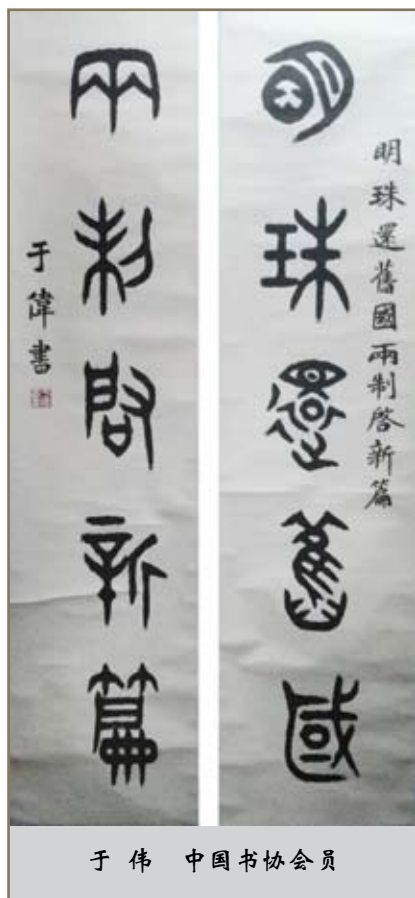 明珠還舊國
明珠還舊國兩制啓新篇
兩制啓新篇
于偉書
于 伟　中国书协会员